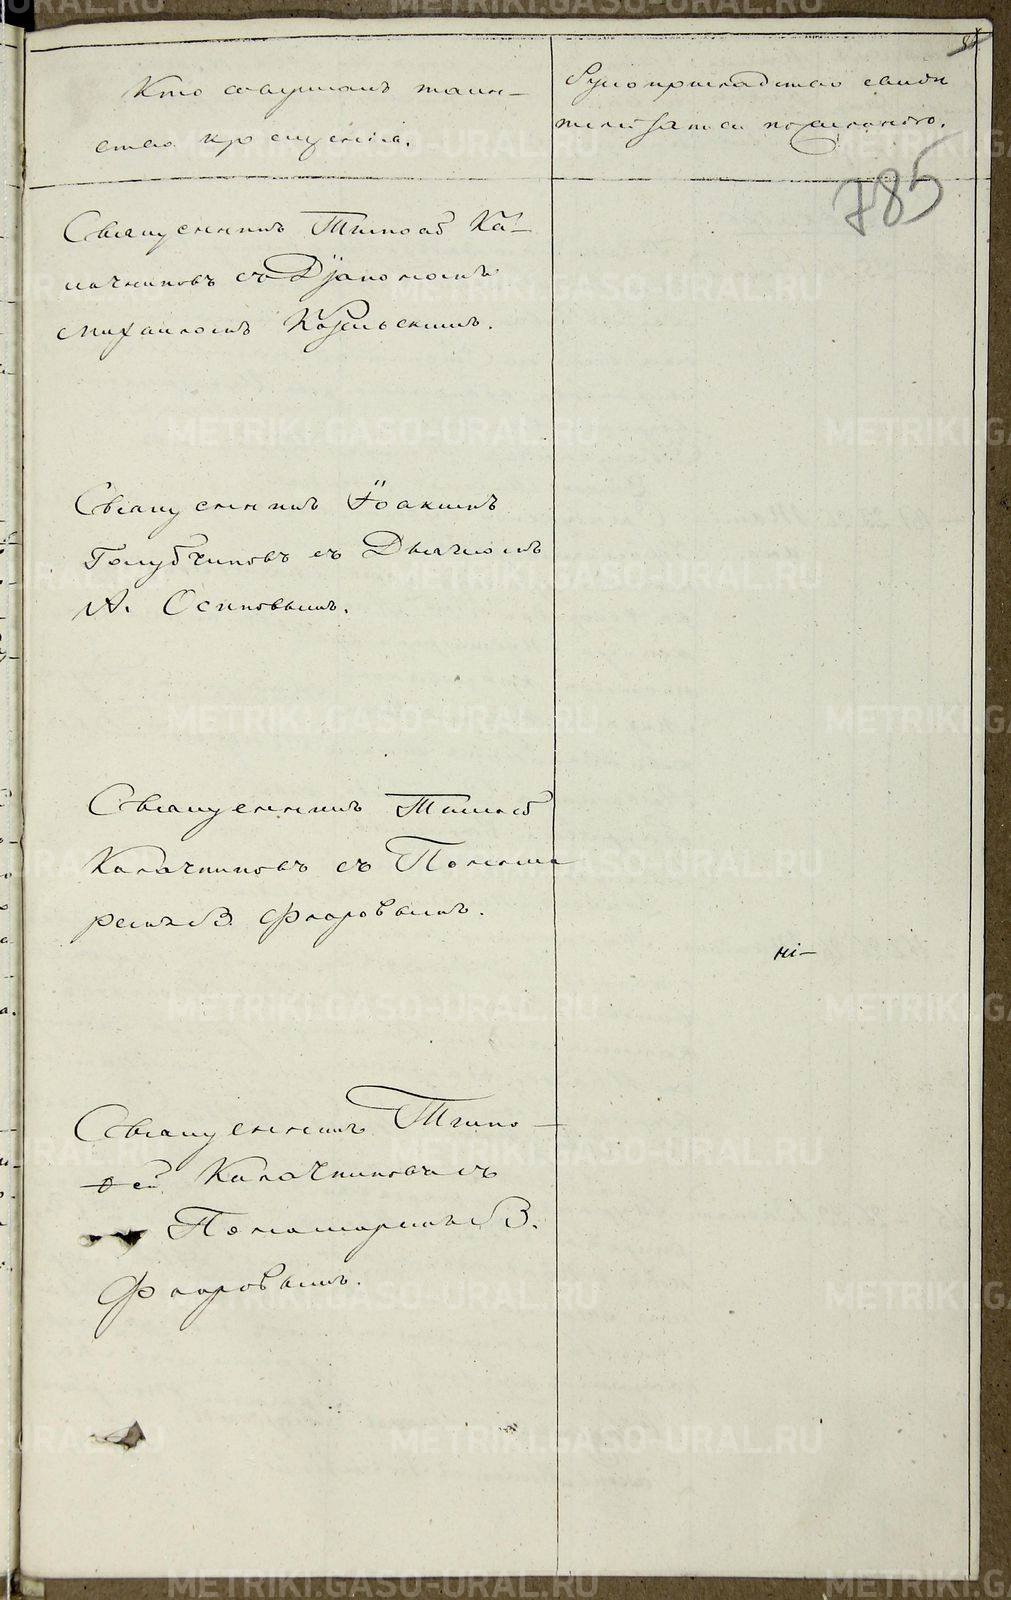 Кто совершалъ таин-
ство крещенія.
Рукоприкладство свидѣ
телей записи по желанію.
785
Священникъ Тимоѳей Ка-
лачниковъ съ Діакономъ
Михаиломъ Козельскимъ.
Священникъ Іоакимъ
Голубчиковъ съ Дьячкомъ
А. Осиповымъ.
Священникъ Тимоѳ
Калачниковъ съ Понома
ремъ В. Флоровымъ.
Священникъ Тимо-
ѳей Калачниковъ съ
Пономаремъ В.
Флоровымъ.
METRIKI.GASO-URAL.RU